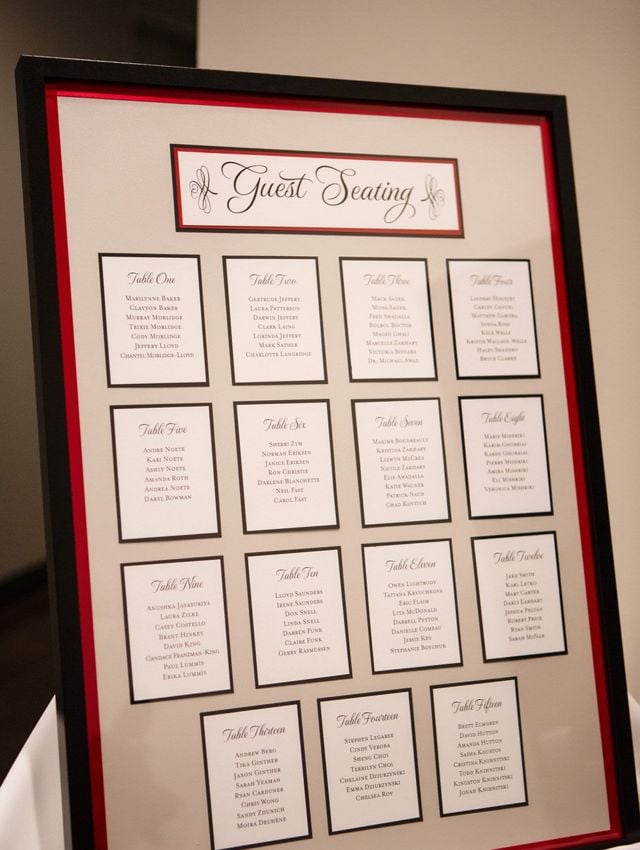 Guest Seating
Table One
Marilynne Baker
Clayton Baker
Murray Morlidge
Trixie Morlidge
Cody Morlidge
Jeffery Lloyd
Chantel Morlidge-Lloyd
Table Two
Gertrude Jeffery
Laura Patterson
Darwin Jeffery
Clark Laing
Lorinda Jeffery
Mark Sather
Charlotte Langridge
Table Three
Mack Sader
Mona Sader
Fred Awadalla
Bolbol Boctor
Maged Ghali
Marcelle Zakhary
Victoria Bishara
Dr. Michael Awad
Table Four
Lindsay
Carley
Matthew Zamora
Ross
Kyle Welle
Kristie Wallace-Welle
Haley
Bruce Clarke
Table Five
Andre Noete
Kari Noete
Ashly Noete
Amanda Roth
Andrea Noete
Daryl Bowman
Table Six
Sherri Zyw
Norman Eriksen
Janice Eriksen
Ron Christie
Darlene Blanchette
Neil Fast
Carol Fast
Table Seven
Maxime Boudreault
Kristina Zakhary
Llewyn McCrea
Nicole Zakhary
Elie Awadalla
Katie Wagner
Patrick Nach
Chad Kovitch
Table Eight
Mary Mishriki
Karim Ghobrial
Karen Ghobrial
Pierre Mishriki
Amira Mishriki
Eli Mishriki
Veronica Mishriki
Table Nine
Anushka Jayasuriya
Laura Zilke
Casey Costello
Brant Hinkey
David King
Candace Franzman-King
Paul Lummis
Erika Lummis
Table Ten
Lloyd Saunders
Irene Saunders
Don Snell
Linda Snell
Darren Funk
Claire Funk
Gerry Rasmussen
Table Eleven
Owen Lightbody
Tatiana Kryuchkova
Eric Flaim
Lita McDonald
Darrell Peyton
Danielle Comeau
Jessie Key
Stephanie Boychuk
Table Twelve
Jake Smith
Karl Letko
Mary Carter
Darci Earhart
Jessica Phelan
Robert Price
Ryan Smith
Sarah McNab
Table Thirteen
Andrew Berg
Tika Ginther
Jason Ginther
Sarah Yeaman
Ryan Carduner
Chris Wong
Sandy Zdunich
Moira Dechêne
Table Fourteen
Stephen Legaree
Cindy Verora
Sheng Choi
Terrilyn Choi
Chelaine Dziurzynski
Emma Dziurzynski
Chelsea Roy
Table Fifteen
Brett Elmgren
David Hutton
Amanda Hutton
Sasha Koustov
Cristina Knihnitski
Todd Knihnitski
Kingston Knihnitski
Jonah Knihnitski